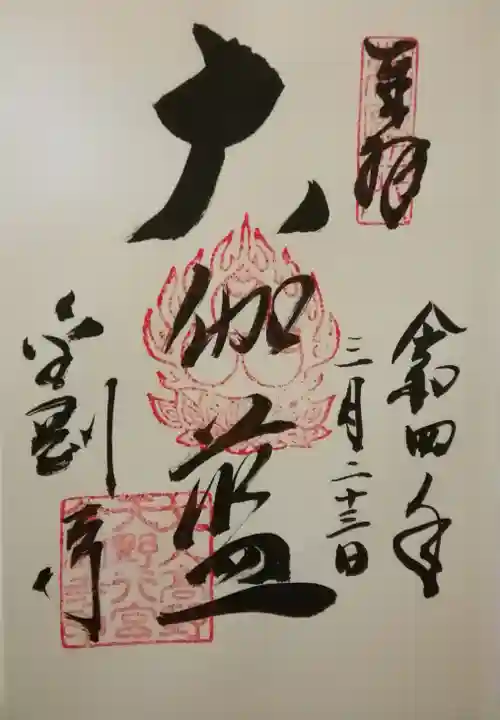 奉拝
令和四年
三月二十三日
大伽藍
金剛寺